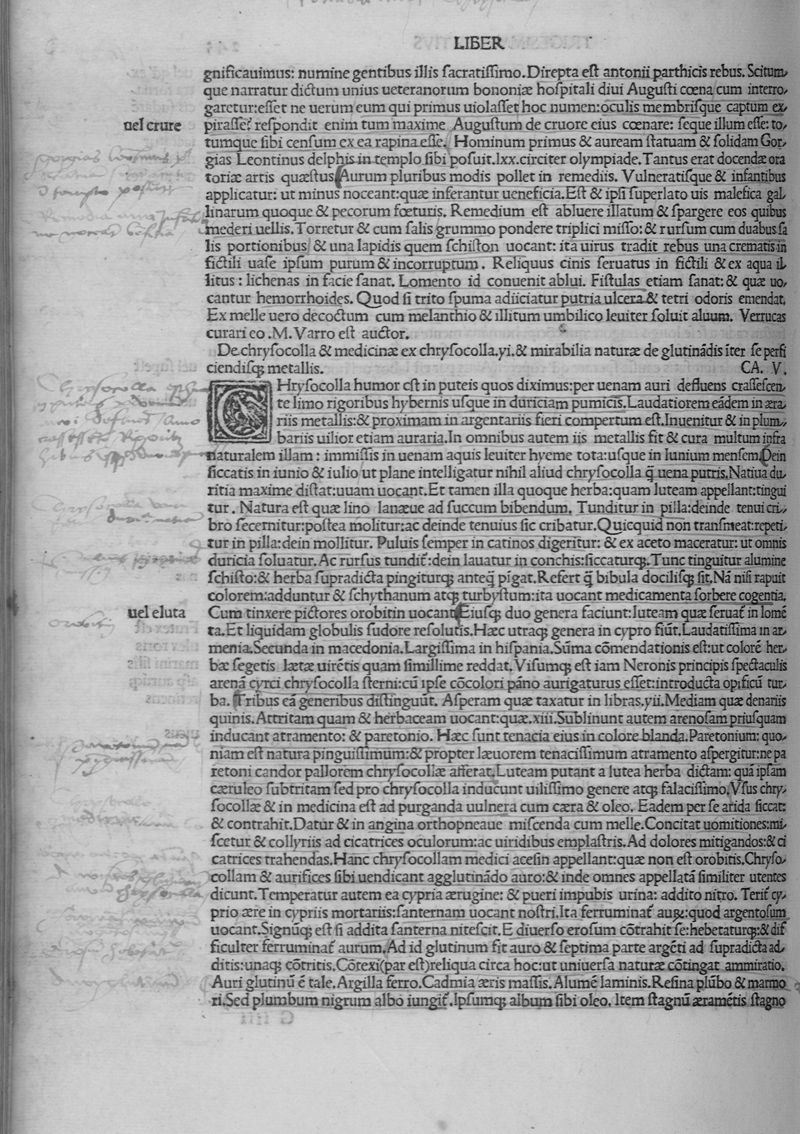 LIBER
gnificauimus: numine gentibus illis ſacratiſſimo. Direpta eſt antonii parthicis rebus. Scitum⸗
que narratur dictum unius ueteranorum bononiæ hoſpitali diui Auguſti cœna cum interro⸗
garetur: eſſet ne uerum eum qui primus uiolaſſet hoc numen: oculis membriſque captum ex⸗
uel crure
piraſſet? reſpondit enim tum maxime Auguſtum de cruore eius cœnare: ſeque illum eſſe: to⸗
tumque ſibi cenſum ex ea rapina eſſe. Hominum primus & auream ſtatuam & ſolidam Gor⸗
gias Leontinus delphis in templo ſibi poſuit. lxx. circiter olympiade. Tantus erat docendæ ora
toriæ artis quæſtus. Aurum pluribus modis pollet in remediis. Vulneratiſque & infantibus
applicatur: ut minus noceant: quæ inferantur ueneficia. Eſt & ipſi ſuperlato uis malefica gal
linarum quoque & pecorum fœturis. Remedium eſt abluere illatum & ſpargere eos quibus
mederi uellis. Torretur & cum ſalis grummo pondere triplici miſſo: & rurſum cum duabus ſa
lis portionibus & una lapidis quem ſchiſton uocant: ita uirus tradit rebus una crematis in
fictili uaſe ipſum purum & incorruptum. Reliquus cinis ſeruatus in fictili & ex aqua il⸗
litus: lichenas in facie ſanat. Lomento id conuenit ablui. Fiſtulas etiam ſanat: & quæ uo⸗
cantur hemorrhoides. Quod ſi trito ſpuma adiiciatur putria ulcera & tetri odoris emendat.
Ex melle uero decoctum cum melanthio & illitum umbilico leuiter ſoluit aluum. Verrucas
curari eo. M. Varro eſt auctor.
De chryſocolla & medicinæ ex chryſocolla. yi. & mirabilia naturæ de glutinādis iter ſe perfi
ciendiſq; metallis. CA. V.
CHryſocolla humor eſt in puteis quos diximus: per uenam auri defluens craſſeſcen⸗
te limo rigoribus hybernis uſque in duriciam pumicis. Laudatiorem eādem in æra⸗
riis metallis: & proximam in argentariis fieri compertum eſt. Inuenitur & in plum⸗
bariis uilior etiam auraria. In omnibus autem iis metallis fit & cura multum infra
naturalem illam: immiſſis in uenam aquis leuiter hyeme tota: uſque in Iunium menſem. Dein
ſiccatis in iunio & iulio ut plane intelligatur nihil aliud chryſocolla q̄ uena putris. Natiua du⸗
ritia maxime diſtat: uuam uocant. Et tamen illa quoque herba: quam luteam appellant: tingui
tur. Natura eſt quæ lino lanæue ad ſuccum bibendum. Tunditur in pilla: deinde tenui cri⸗
bro ſecernitur: poſtea molitur: ac deinde tenuius ſic cribatur. Quicquid non tranſmeat: repeti⸗
tur in pilla: dein mollitur. Puluis ſemper in catinos digeritur: & ex aceto maceratur: ut omnis
duricia ſoluatur. Ac rurſus tundit̄: dein lauatur in conchis: ſiccaturq;. Tunc tinguitur alumine
ſchiſto: & herba ſupradicta pingiturq; anteq̄ pīgat. Refert q̄ bibula dociliſq; ſit. Nā niſi rapuit
colorem: adduntur & ſchythanum atq; turbyſtum: ita uocant medicamenta ſorbere cogentia.
uel eluta
Cum tinxere pictores orobitin uocant. Eiuſq; duo genera faciunt: luteam quæ ſeruat̄ in lomē
ta. Et liquidam globulis ſudore reſolutis. Hæc utraq; genera in cypro fiūt. Laudatiſſima in ar⸗
menia. Secunda in macedonia. Largiſſima in hiſpania. Sūma cōmendationis eſt: ut colorē her⸗
bæ ſegetis lætæ uirētis quam ſimillime reddat. Viſumq; eſt iam Neronis principis ſpectaculis
arenā cyrci chryſocolla ſterni: cū ipſe cōcolori pāno aurigaturus eſſet: introducta opificū tur⸗
ba. Tribus eā generibus diſtinguūt. Aſperam quæ taxatur in libras. yii. Mediam quæ denariis
quinis. Attritam quam & herbaceam uocant: quæ. xiii. Sublinunt autem arenoſam priuſquam
inducant atramento: & paretonio. Hæc ſunt tenacia eius in colore blanda. Paretonium: quo⸗
niam eſt natura pinguiſſimum: & propter læuorem tenaciſſimum atramento aſpergitur: ne pa
retoni candor pallorem chryſocollæ afferat. Luteam putant a lutea herba dictam: quā ipſam
cæruleo ſubtritam ſed pro chryſocolla inducunt uiliſſimo genere atq; fallaciſſimo. Vſus chry⸗
ſocollæ & in medicina eſt ad purganda uulnera cum cæra & oleo. Eadem per ſe arida ſiccat:
& contrahit. Datur & in angina orthopneaue miſcenda cum melle. Concitat uomitiones: mi⸗
ſcetur & collyriis ad cicatrices oculorum: ac uiridibus emplaſtris. Ad dolores mitigandos: & ci
catrices trahendas. Hanc chryſocollam medici aceſin appellant: quæ non eſt orobitis. Chryſo⸗
collam & aurifices ſibi uendicant agglutinādo auro: & inde omnes appellatā ſimiliter utentes
dicunt. Temperatur autem ea cypria ærugine: & pueri impubis urina: addito nitro. Terit̄ cy⸗
prio ære in cypriis mortariis: ſanternam uocant noſtri. Ita ferruminat̄ auꝝ: quod argentoſum
uocant. Signūq; eſt ſi addita ſanterna niteſcit. E diuerſo eroſum cōtrahit ſe: hebetaturq;: & dif
ficulter ferruminat̄ aurum. Ad id glutinum fit auro & ſeptima parte argēti ad ſupradicta ad⸗
ditis: unaq; cōtritis. Cōtexi (par eſt) reliqua circa hoc: ut uniuerſa naturæ cōtingat ammiratio.
Auri glutinū ē tale. Argilla ferro. Cadmia æris maſſis. Alumē laminis. Reſina plūbo & marmo⸗
ri. Sed plumbum nigrum albo iungit̄. Ipſumq; album ſibi oleo. Item ſtagnū æramētis ſtagno